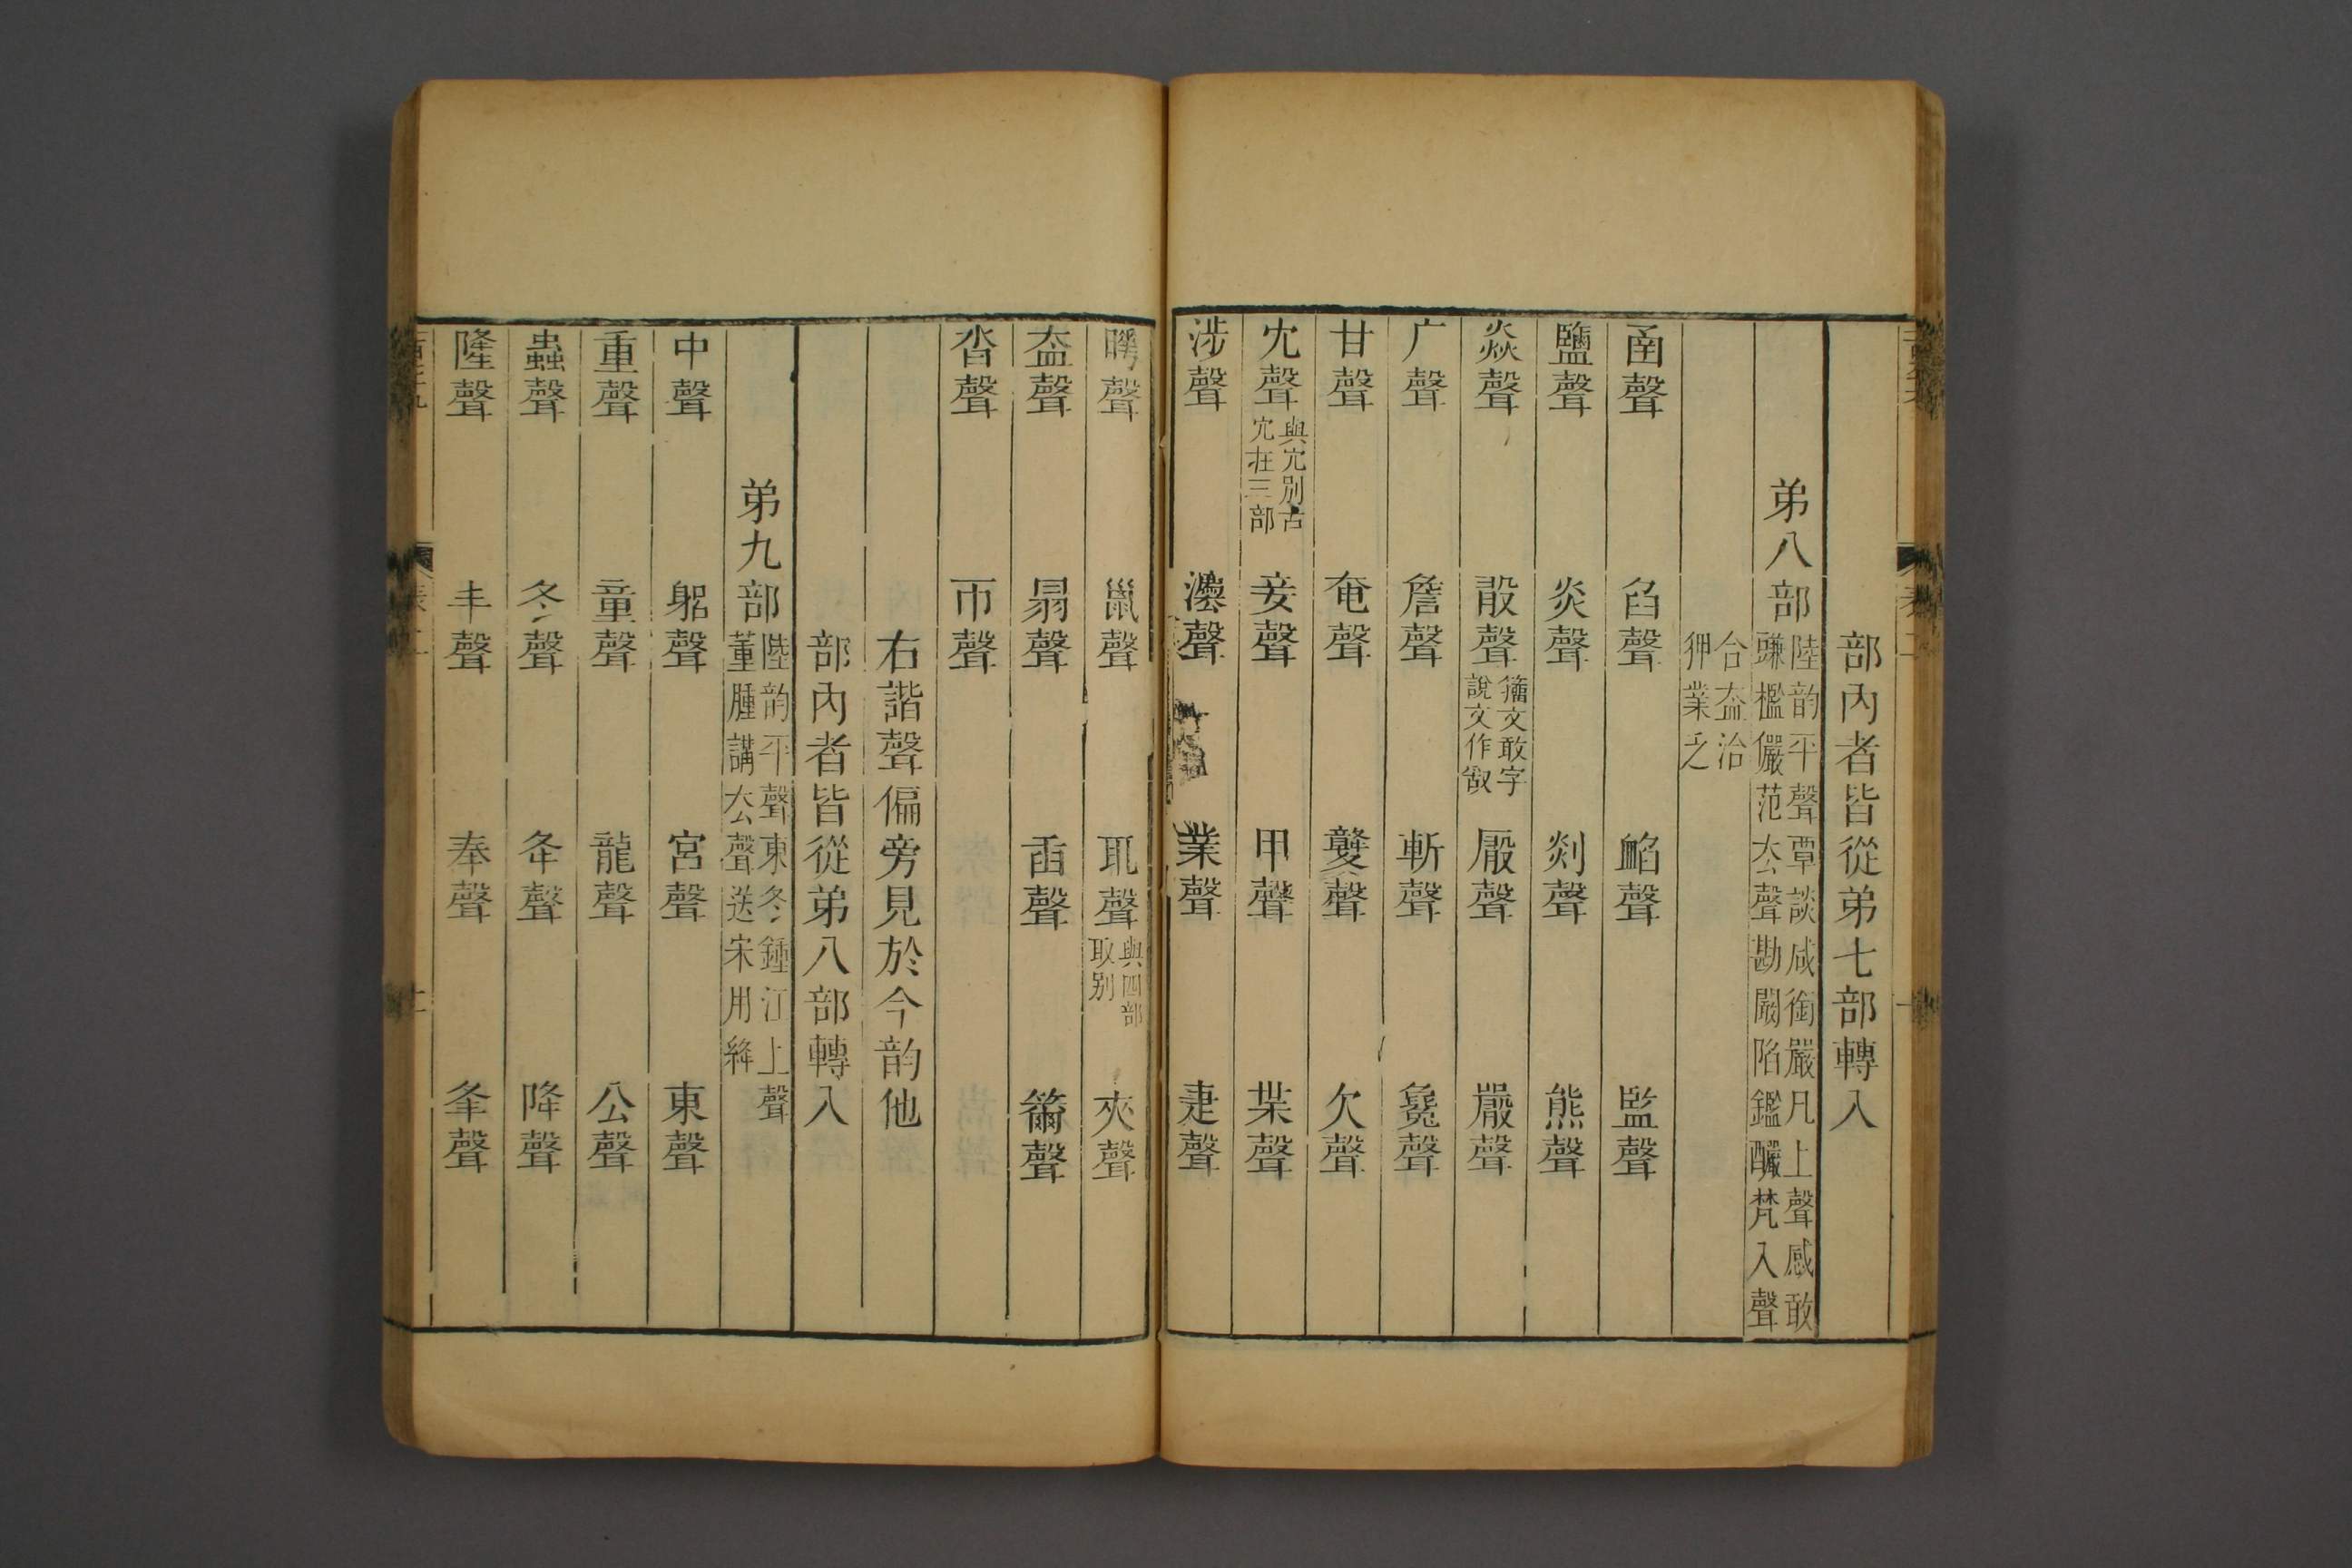 部內者皆從弟七部轉入
弟八部陸韵平聲覃談咸銜嚴凡上聲感敢
豏檻儼范厺聲勘闞陷鑑釅梵入聲
合盍洽
狎業乏
臽聲 監聲
鹽聲 炎聲 剡聲 熊聲
焱聲 㪉聲籒文敢字
說文作𠭖 厰聲 嚴聲
广聲 詹聲 斬聲 毚聲
甘聲 奄聲 欠聲
冘聲與宂別古
宂在三部 妾聲 甲聲 枼聲
涉聲 灋聲 業聲 疌聲
聲 巤聲 耴聲與四部
取别 夾聲
盍聲 㬱聲 臿聲 籋聲
沓聲 帀聲
右諧聲偏旁見於今韵他
部內者皆從弟八部轉入
弟九部陸韵平聲東冬鍾江上聲
董腫講厺聲送宋用絳
中聲 躳聲 宮聲 東聲
重聲 童聲 龍聲 公聲
蟲聲 冬聲 夅聲 降聲
隆聲 丰聲 奉聲 夆聲